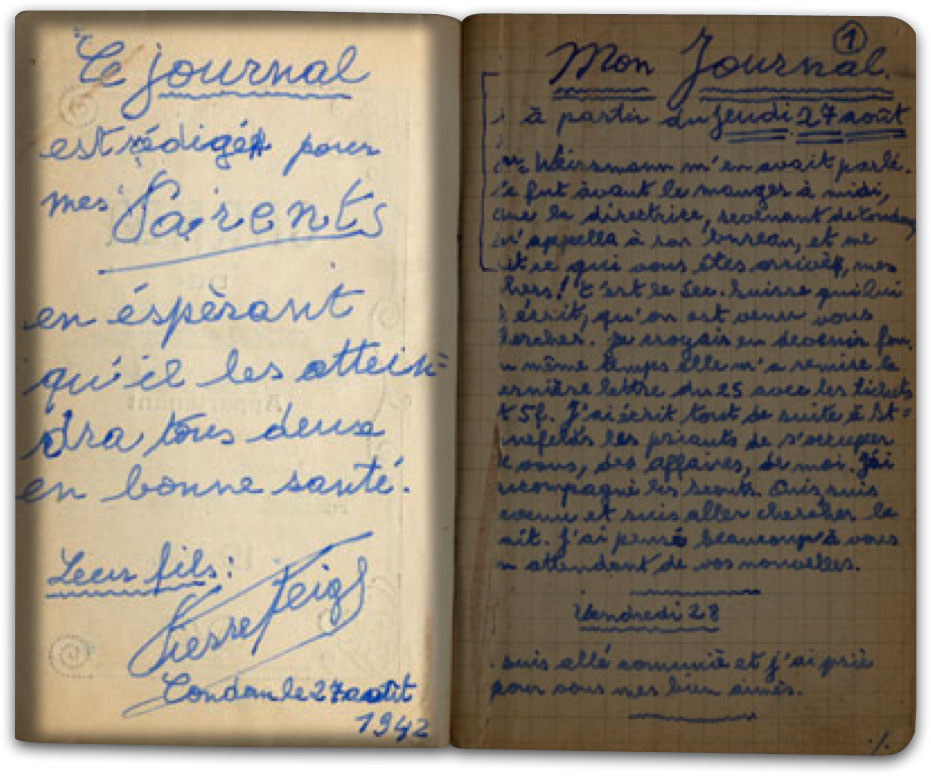 Ce journal
est rédigé pour
mes Parents
en éspèrant
qu'il les attein=
dra tous deux
en bonne santé.
Leur fils:
Pierre Feigl
Condom le 27 août
1942
1
Mon Journal.
à partir du jeudi 27 août
Mr Weissmann m'en avait parlé.
Ce fut àvant le manger à midi,
que la directrice, revenant de Condom
m'appella à son bureau, et me
dit ce qui vous êtes arrivés, mes
chers! C'est le Sec. Suisse qui lui
écrit, qu'on est venu vous
chercher. Je croyais en devenir fou.
en même temps elle m'a remise la
dernière lettre du 25 avec les tickets
et 5f. J'ai écrit tout de suite à
les priants de s'occuper
de vous, des affaires, de moi. J'ai
accompagné les scouts. Puis suis
revenu et suis aller chercher le
lait. J'ai pensé beaucoup à vous
en attendant de vos nouvelles.
Vendredi 28
suis allé communié et j'ai prié
pour vous mes bien aimés.
./.